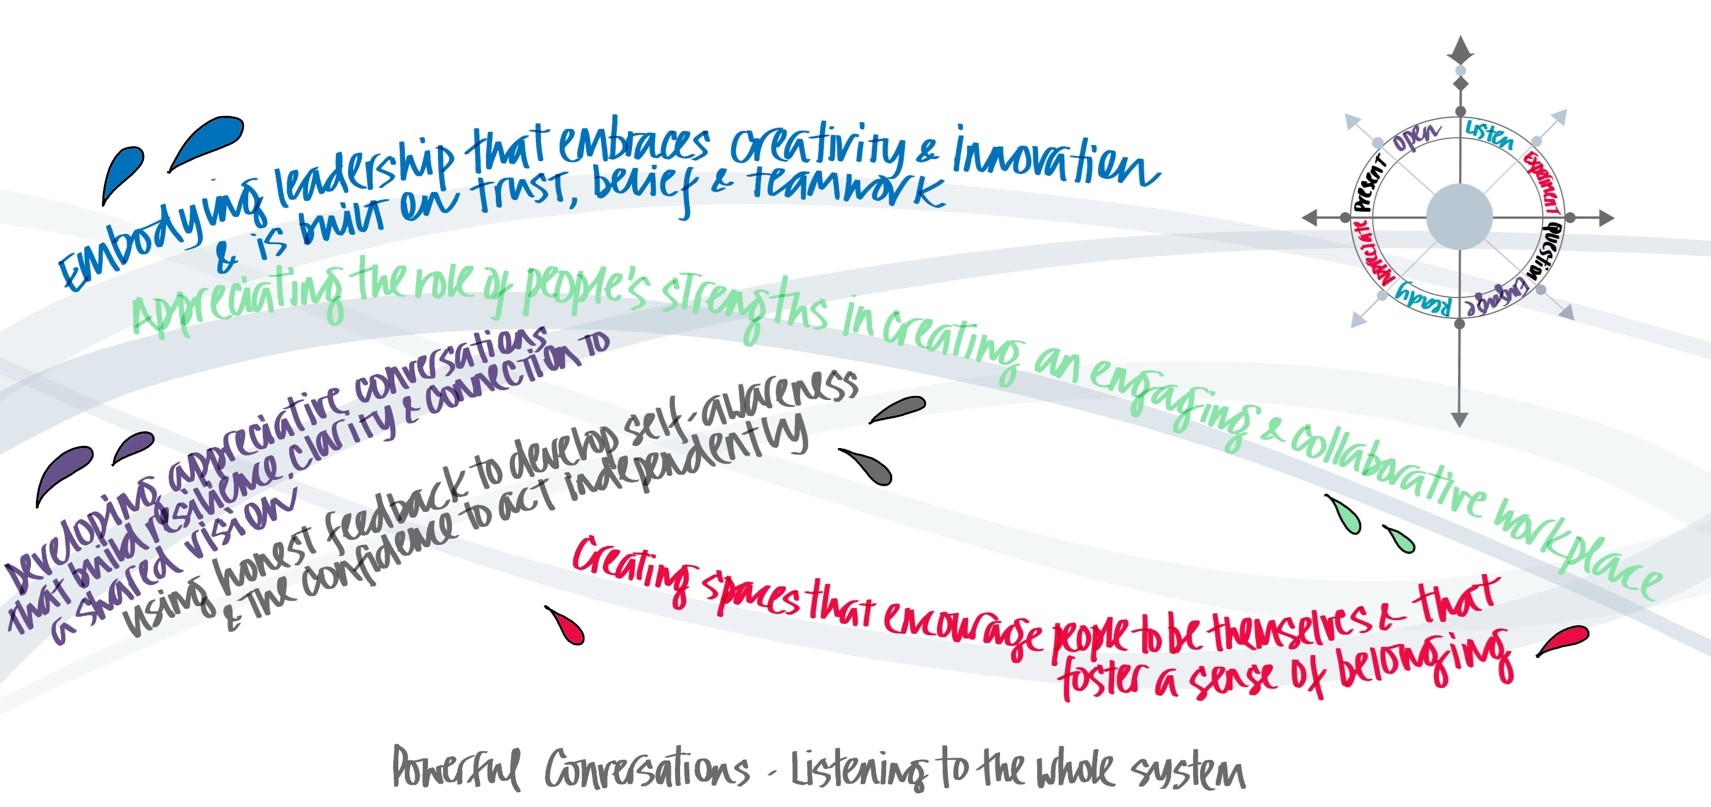 Embodying leadership that embraces creativity & innovation
& is built on trust, belief & teamwork
Appreciating the role of people's strengths in creating an engaging & collaborative workplace
Developing appreciative conversations
that build resilience, clarity & connection to
a shared vision
using honest feedback to develop self-awareness
& the confidence to act independently
Creating spaces that encourage people to be themselves & that
foster a sense of belonging
Open
Listen
Experiment
Question
Engage
Ready
Appreciate
Present
Powerful Conversations - Listening to the whole system